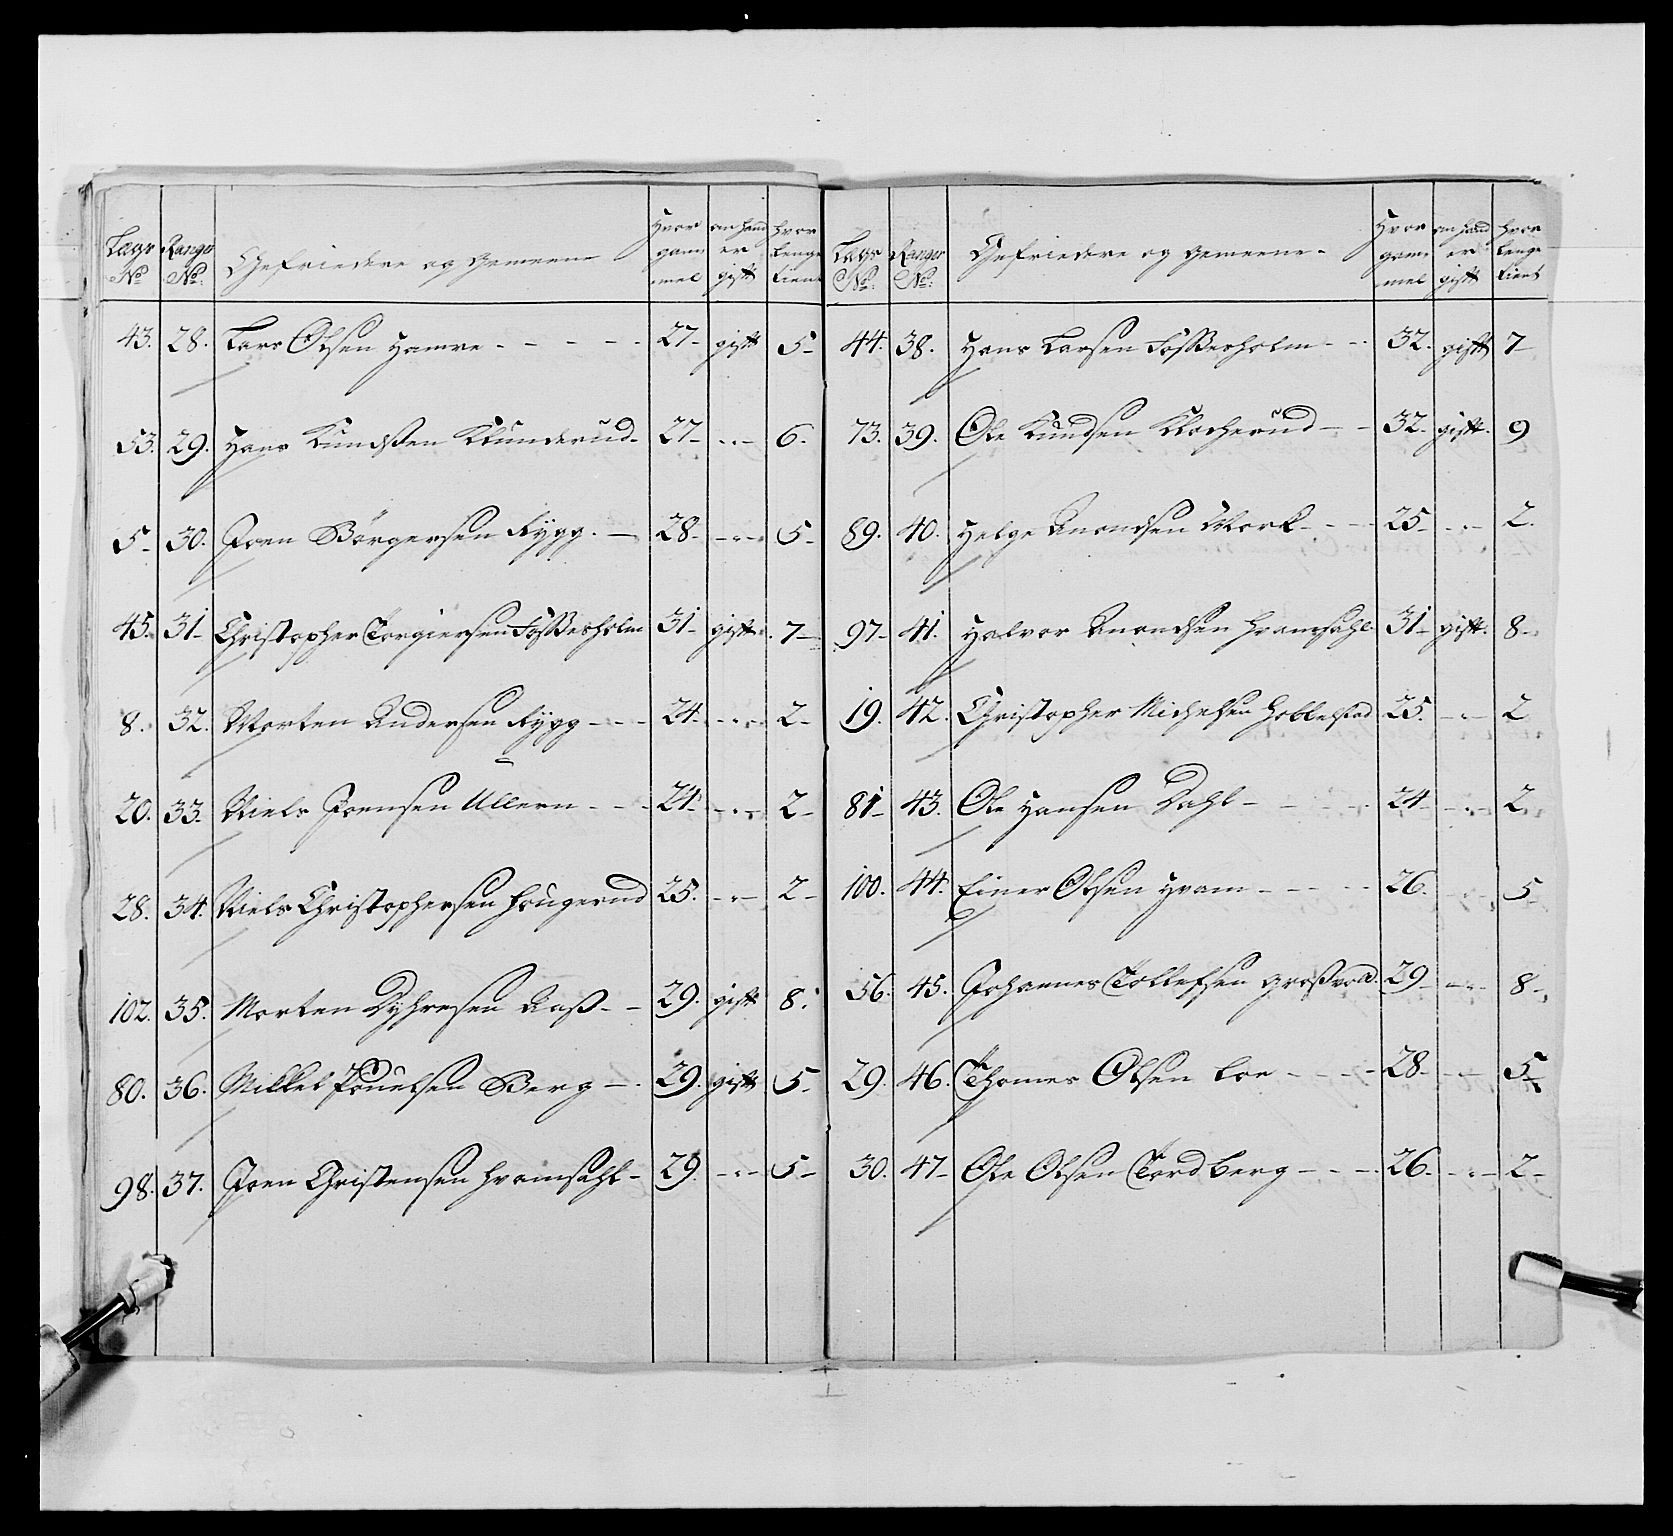 Lægs No Rangs No: Gefriedere og Gemeene Hvor gam mel om hand er gift hvor lenge tient
43. 28. Lars Olsen Hamre - - - - - 27- gift 5-
53. 29. Hans Knudsen Klunderud- 27- -"- 6.
5- 30. Joen Börgersen Rygg. - 28- -"- 5-
45. 31- Christopher Torgiersen Fossesholm 31- gift. 7-
8. 32. Morten Andersen Rygg - - - 24. -"- 2-
20. 33. Niels Joensen Ullern - - - 24- -"- 2-
28. 34. Niels Christophersen Hougerud 25. -"- 2-
102. 35. Morten Dyhresen Aaß - - 29. gift 8.
80. 36. Mikkel Pouelsen Berg - . 29. gift 5-
98. 37. Joen Christensen Hvamsahl - 29. -"- 5-
Lægs No: Rangs No: Gefriedere og Gemeene - Hvor gam mel om hand er gift hvor lenge tient
44. 38. Hans Larsen Fossesholm - - 32. gift 7-
73. 39. Ole Knudsen Klocherud - - 32. gift. 9
89. 40. Helge Anondsen Mork - - - 25- -"- 2.
97- 41. Halvor Anondsen Hvamsahl- 31- gift. 8-
19. 42. Christopher Michelsen Hobbelstad 25. -"- 2
81- 43. Ole Hansen Dahl - - - - 24- -"- 2
100. 44. Einer Olsen Hvam - - - - 26. -"- 5-
56. 45. Johannes Tollefsen Grosvold. 29- -"- 8-
29. 46. Thomes Olsen Loe - - - - 28- -"- 5-
30. 47- Ole Olsen Tordberg - - - 26- -"- 2-